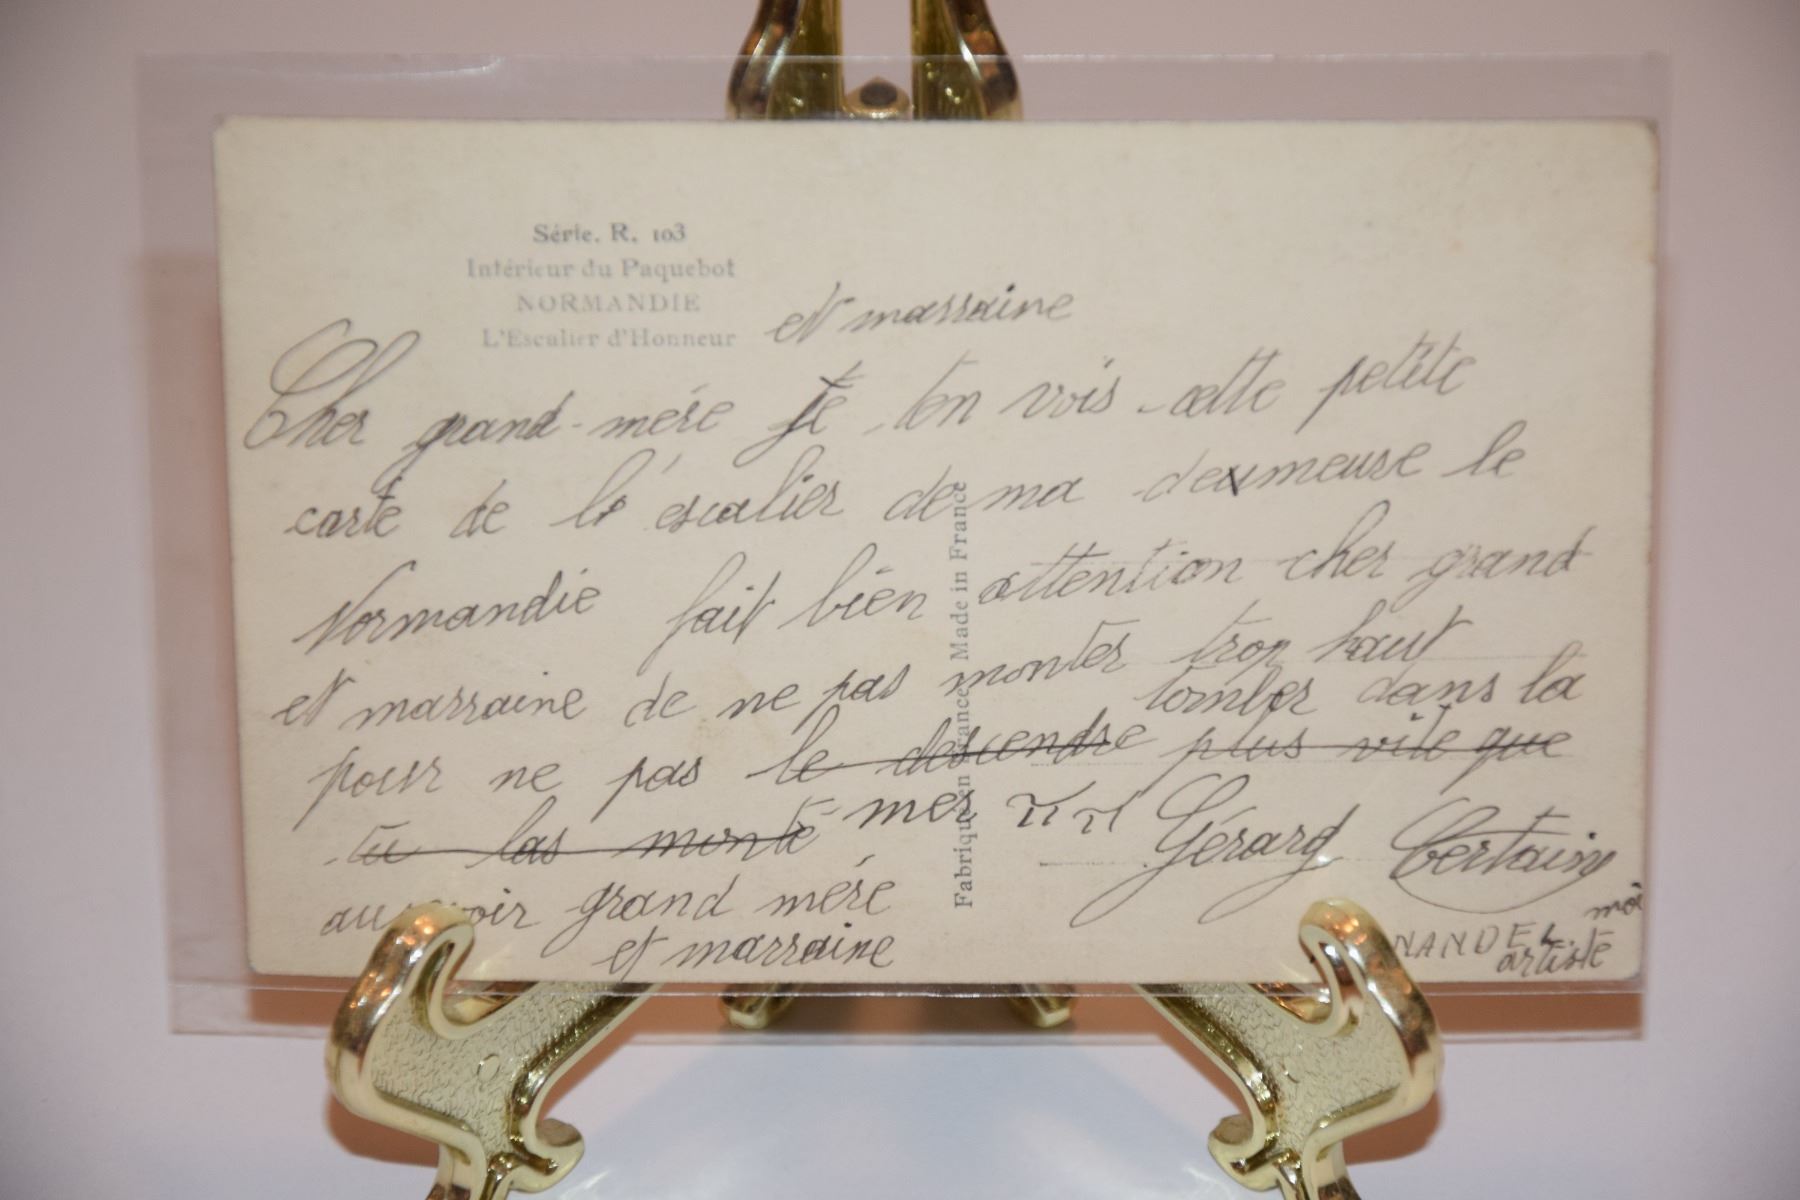 Série. R. 103
Intérieur du Paquebot
NORMANDIE
L'Escalier d'Honneur
et marraine
Cher grand-mére je t'en vois cette petite
carte de l'escalier de ma deumeuse le
Normandie fait bien attention cher grand
et marraine de ne pas monter trop haut
tomber dans la
pour ne pas le descendre plus vite que
tu las monté mer
Gérard Certain
au revoir grand mére
et marraine
moi
artiste
Fabriqué en France Made in France